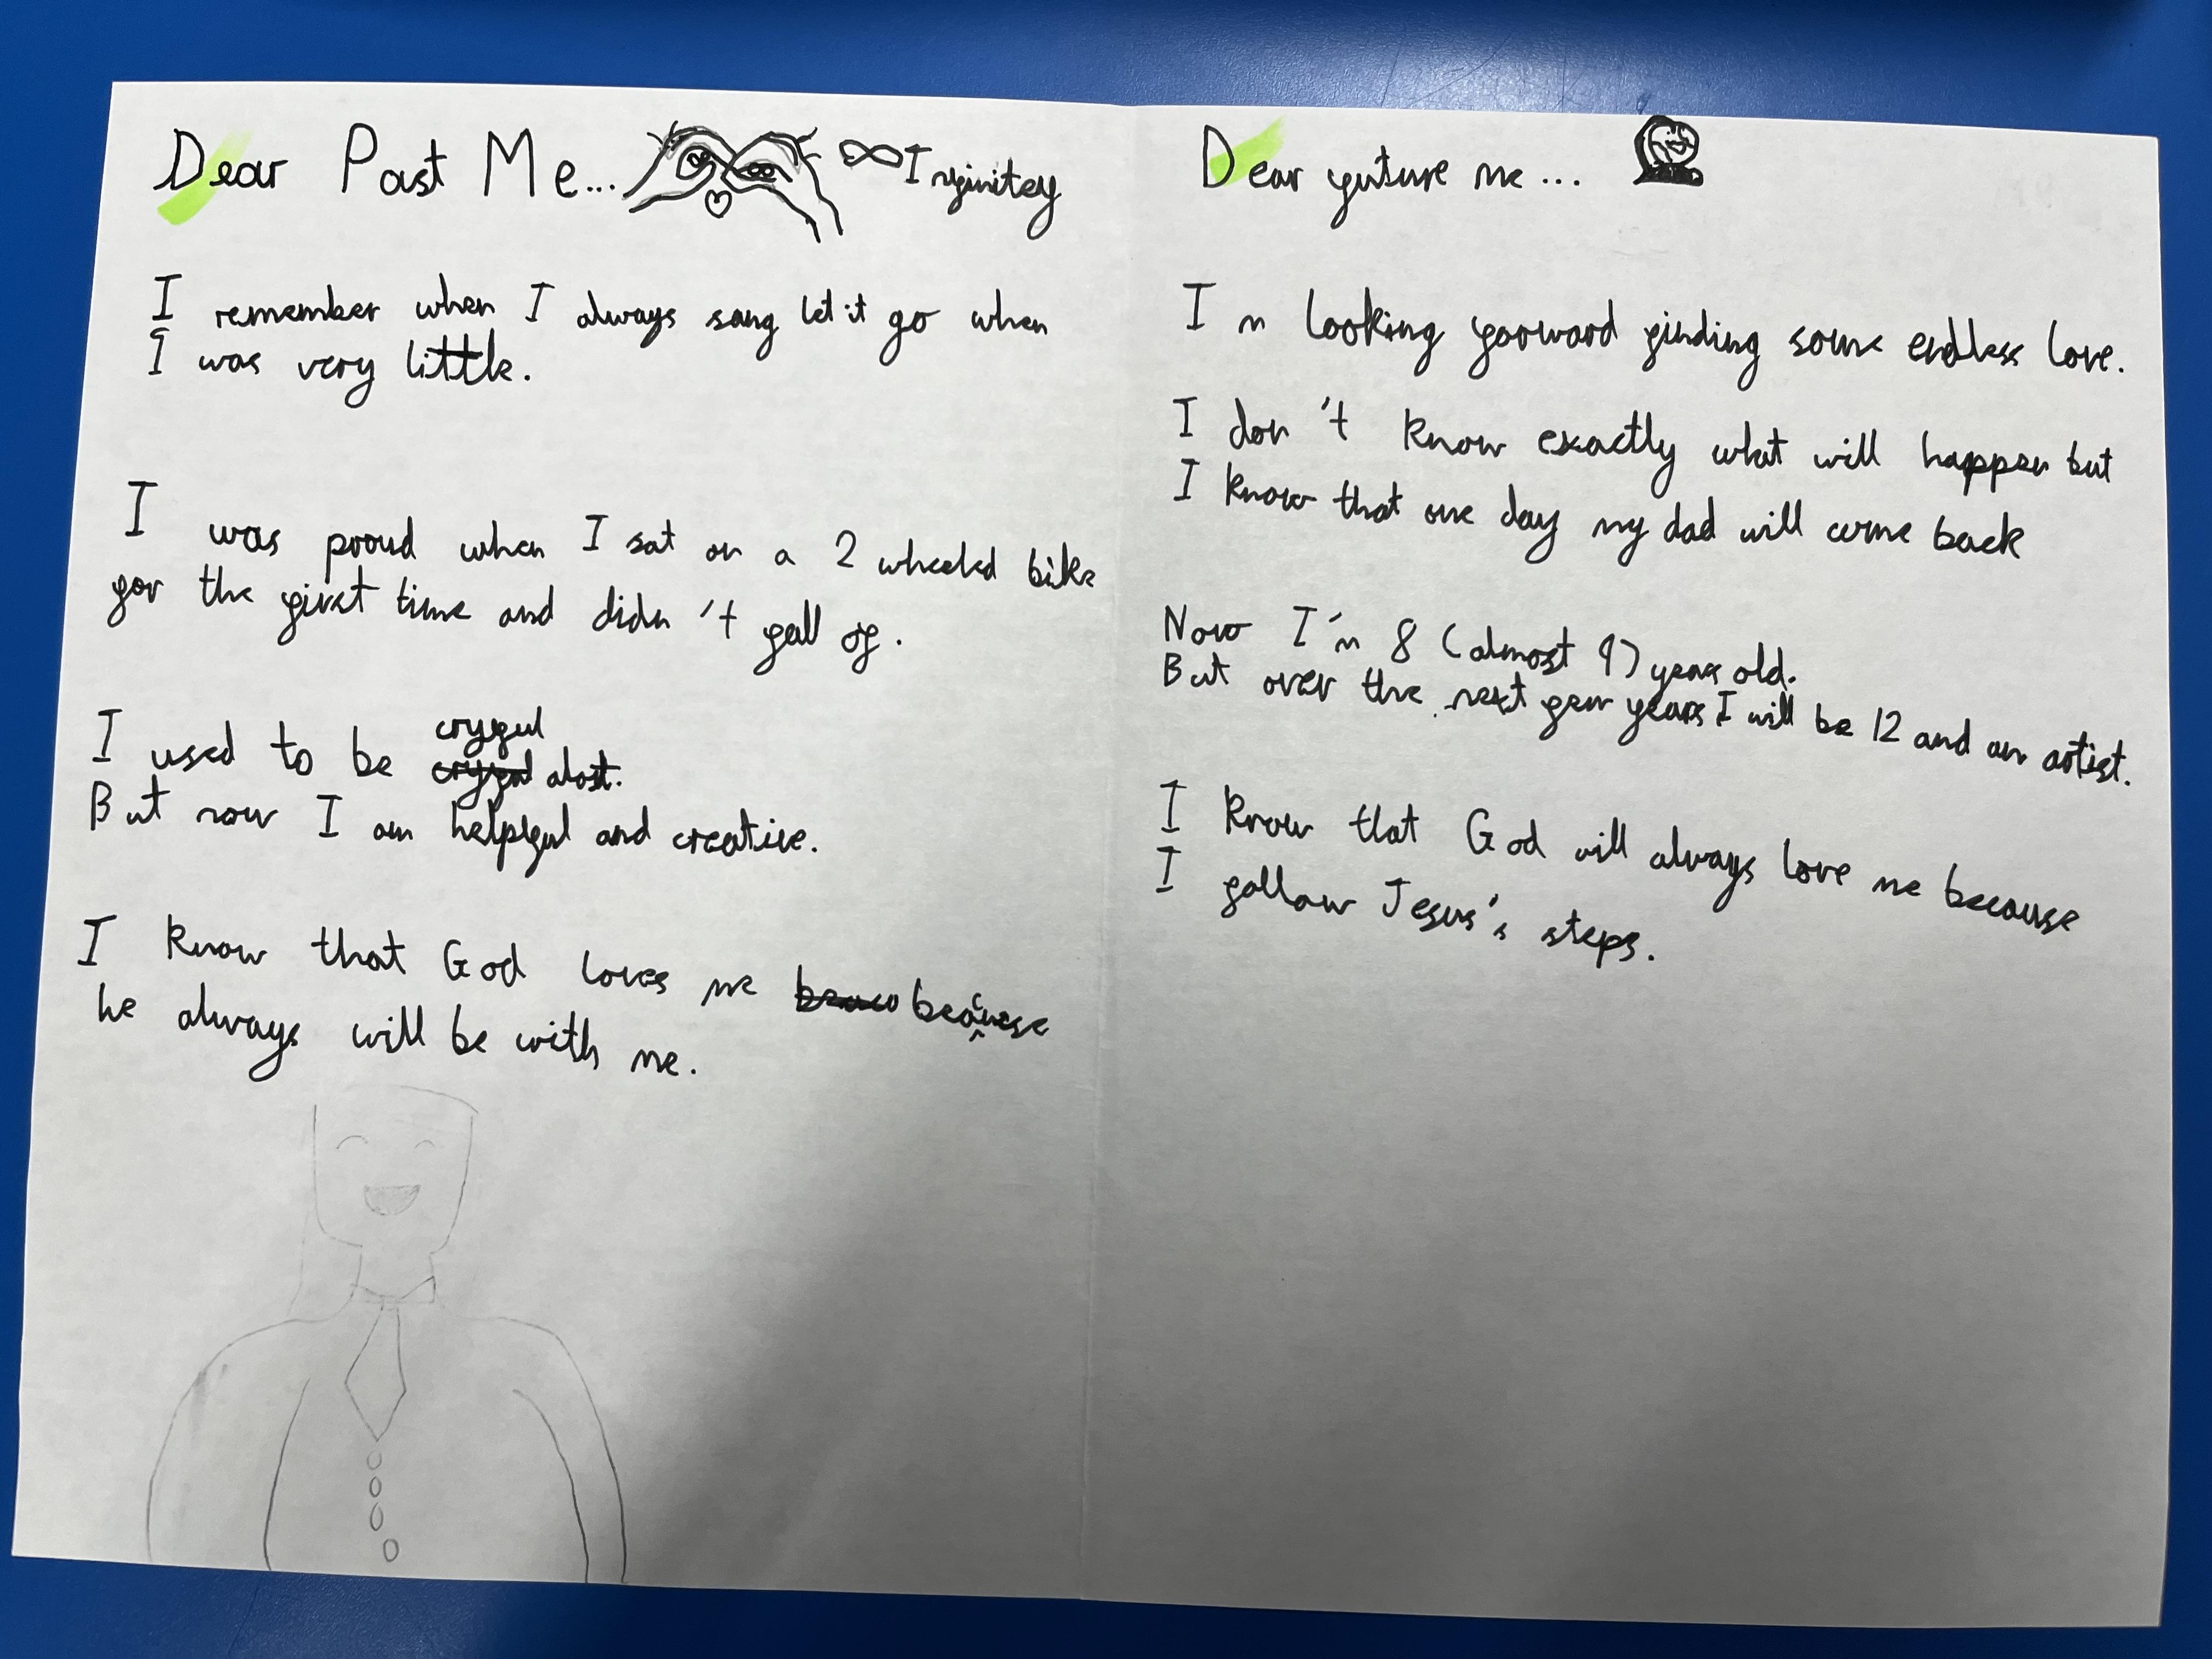 Dear Past Me... ∞ Infinitey
I remember when I always sang let it go when
I was very little.
I was proud when I sat on a 2 wheeled bike
for the first time and didn't fall of.
I used to be cryful
cryful alost.
But now I am helpful and creative.
I know that God loves me because
he always will be with me.
Dear future me...
I'm looking forward finding some endless love.
I don't know exactly what will happen but
I know that one day my dad will come back
Now I'm 8 (almost 9) years old.
But over the next few years I will be 12 and an artist.
I know that God will always love me because
I follow Jesus's steps.